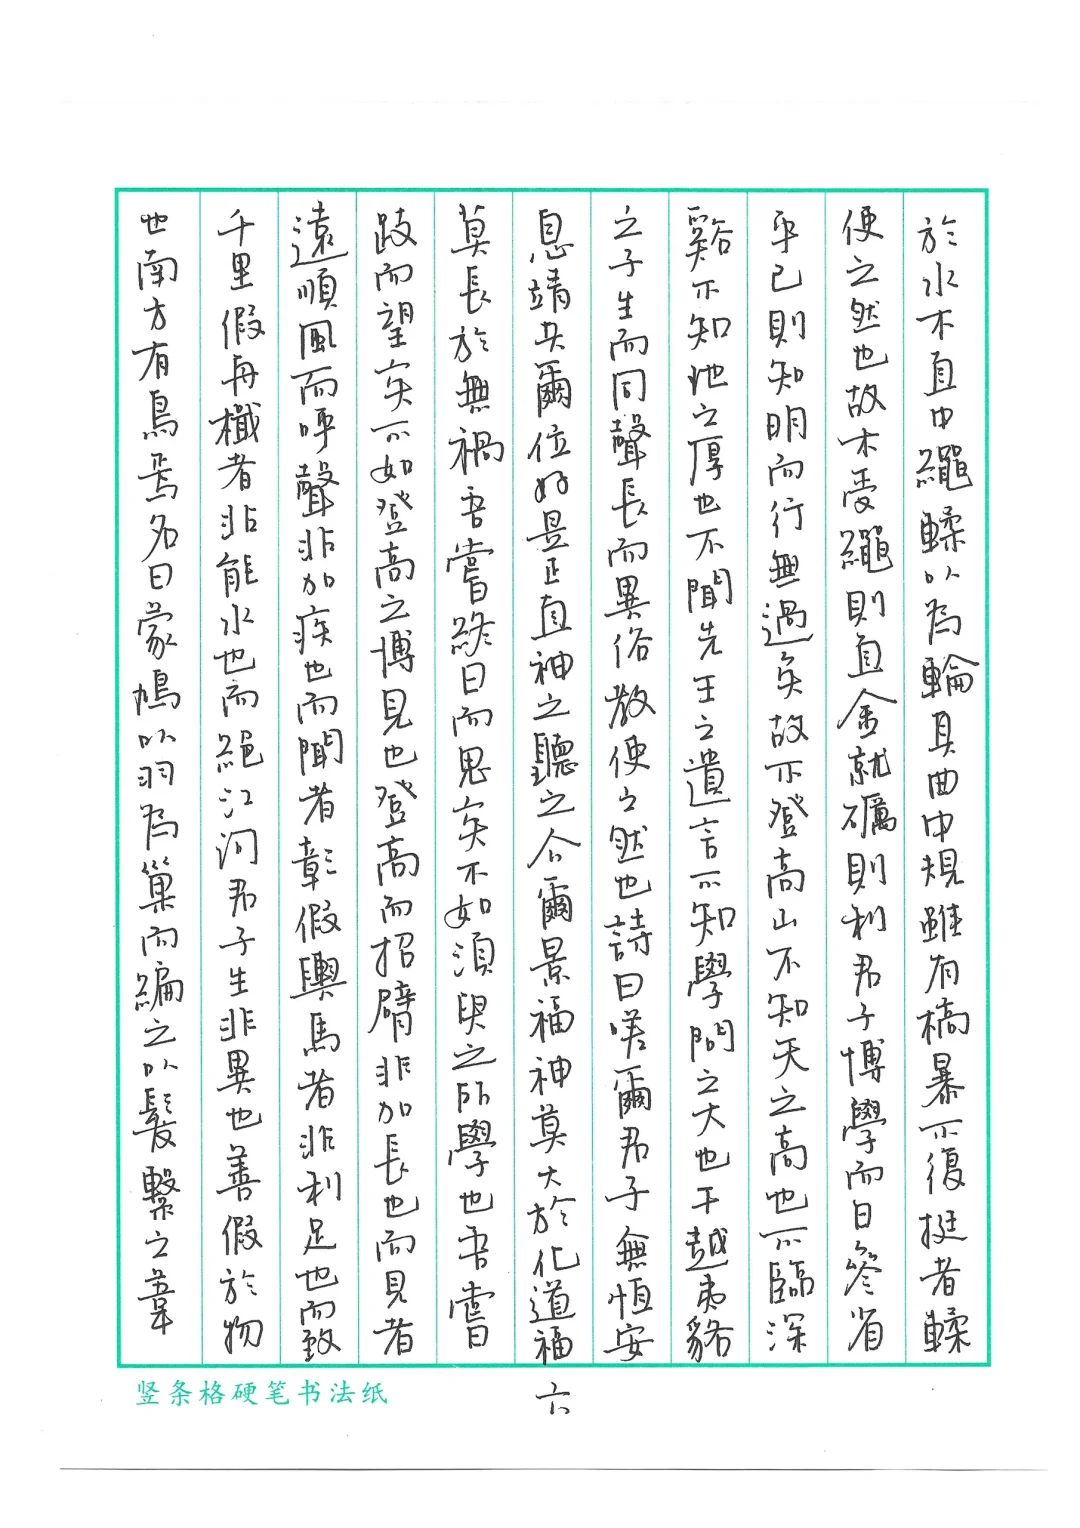 於水木直中繩輮以為輪其曲中規雖有槁暴不復挺者輮
使之然也故木受繩則直金就礪則利君子博學而日參省
乎己則知明而行無過矣故不登高山不知天之高也不臨深
谿不知地之厚也不聞先王之遺言不知學問之大也干越夷貉
之子生而同聲長而異俗教使之然也詩曰嗟爾君子無恆安
息靖共爾位好是正直神之聽之介爾景福神莫大於化道福
莫長於無禍吾嘗終日而思矣不如須臾之所學也吾嘗
跂而望矣不如登高之博見也登高而招臂非加長也而見者
遠順風而呼聲非加疾也而聞者彰假輿馬者非利足也而致
千里假舟檝者非能水也而絕江河君子生非異也善假於物
也南方有鳥焉名曰蒙鳩以羽為巢而編之以髮繫之葦
竖条格硬笔书法纸
六